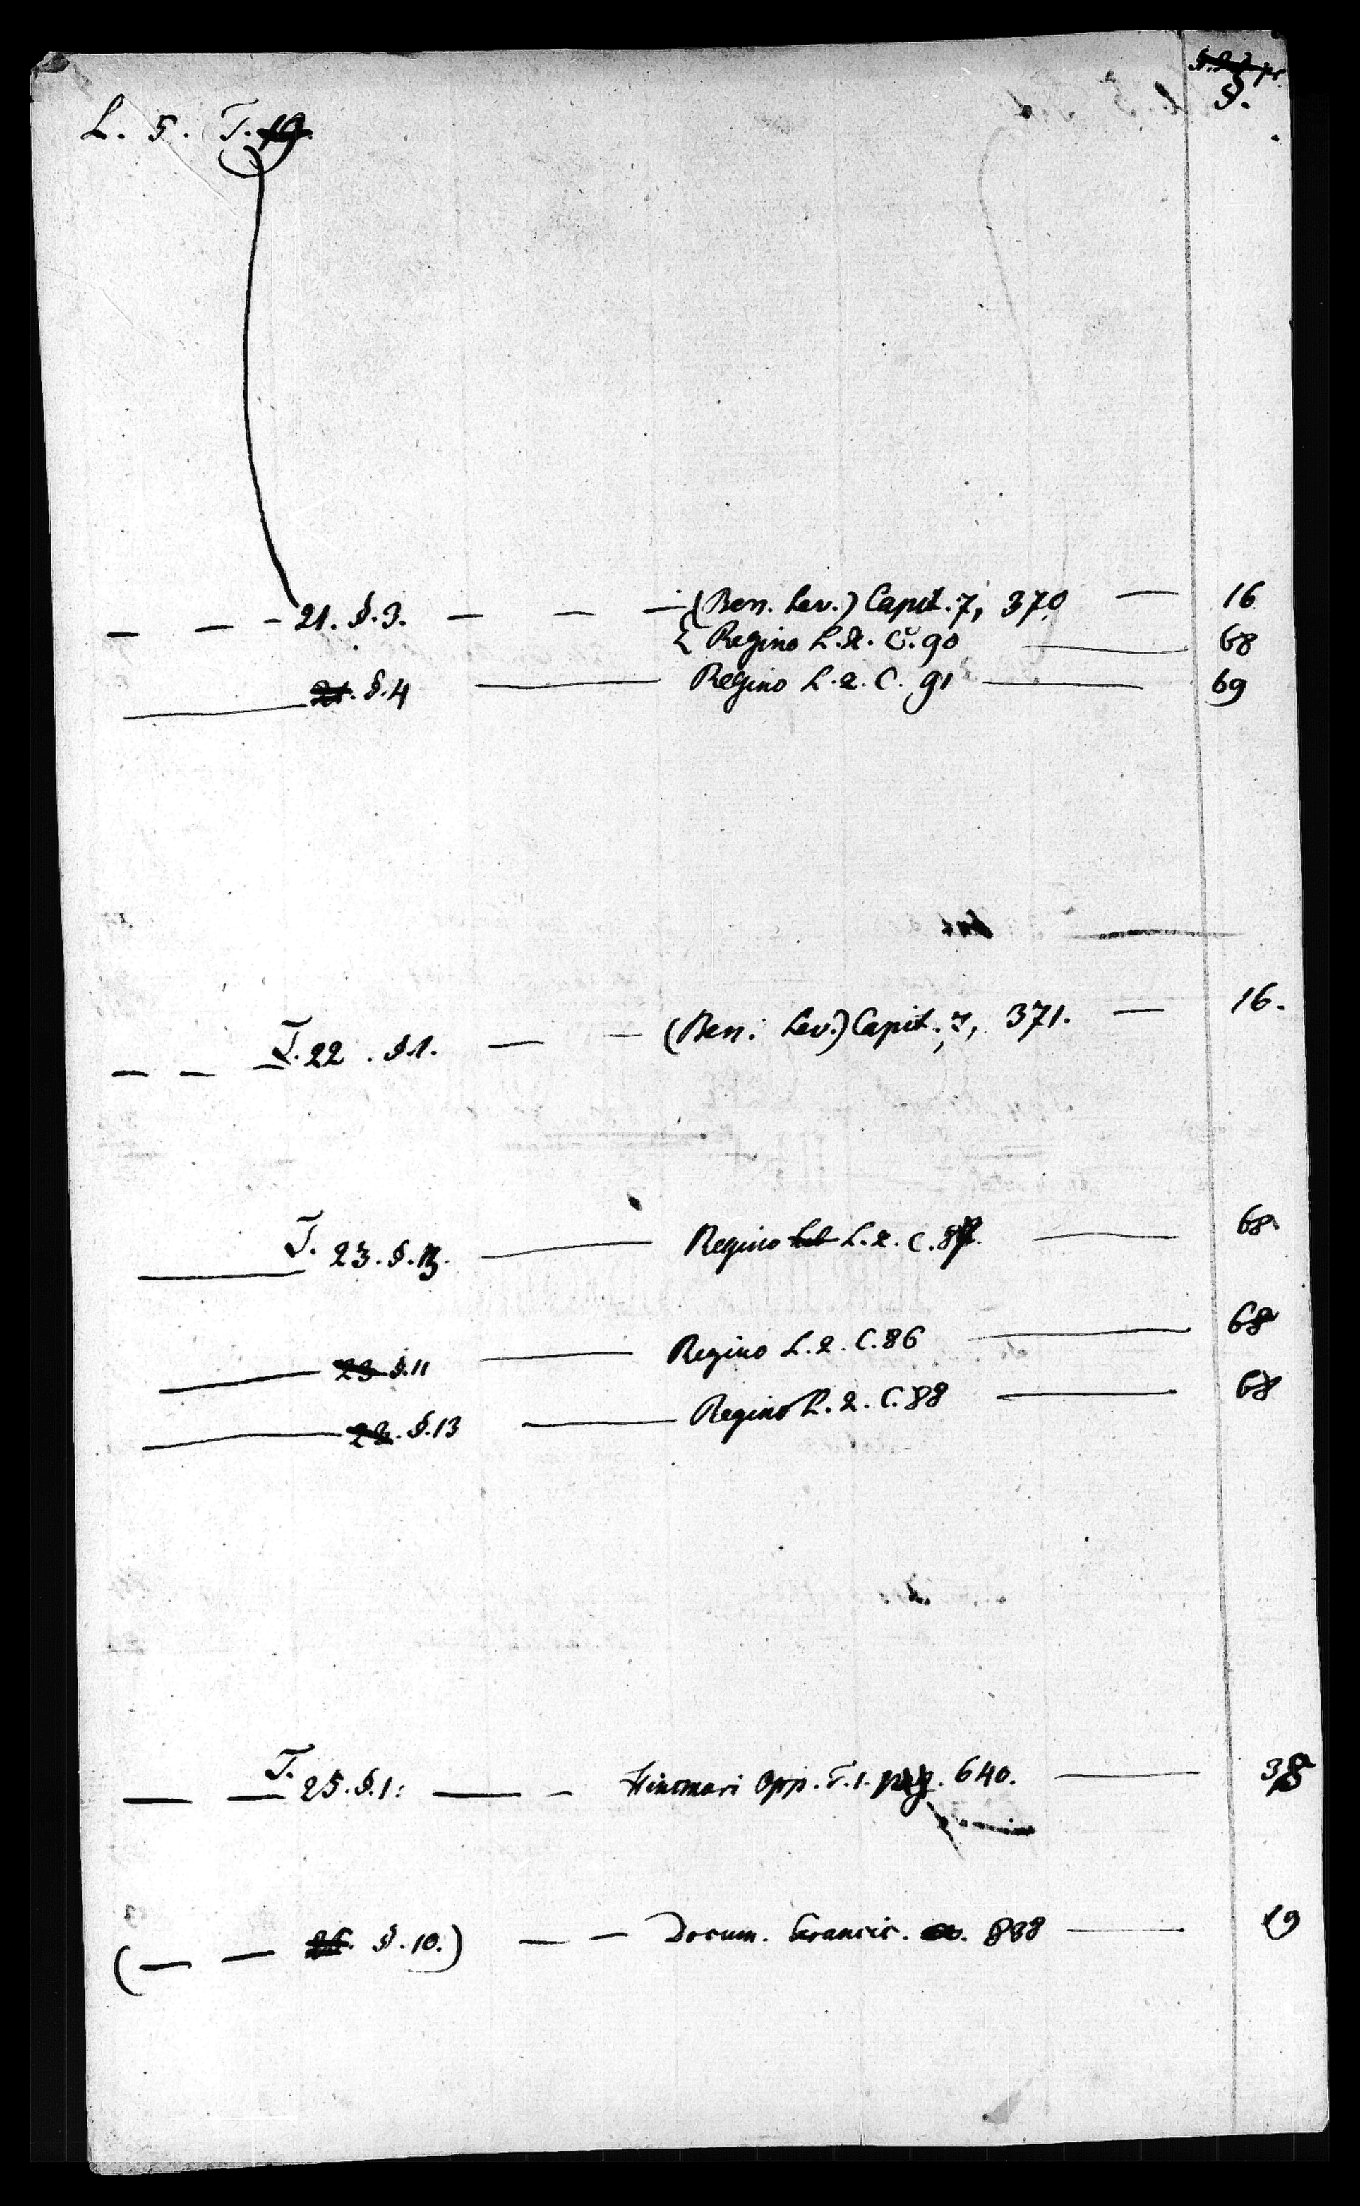 §.
L. 5. T. 19
— — — 21. §. 3. — — — { (Ben. Lev.) Capit. 7, 370. — 16
{ Regino L. 2. C. 90 — 68
— 21. §. 4 — Regino L. 2. C. 91 — 69
— — — T. 22. §. 1. — — (Ben. Lev.) Capit. 7, 371. — 16.
— T. 23. §. — Regino Lib L. 2. C. — 68
— 23 §. 11 — Regino L. 2. C. 86 — 68
— 23. §. 13 — Regino L. 2. C. 88 — 68
— — T. 25. §. 1. — — Hincmari Opp. T. 1. pag. 640. — 38
(— — §. 10.) — — Docum. Francic. a. 838 — 19